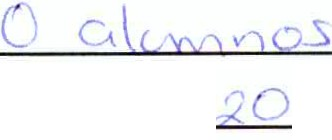 0 alumnos
20